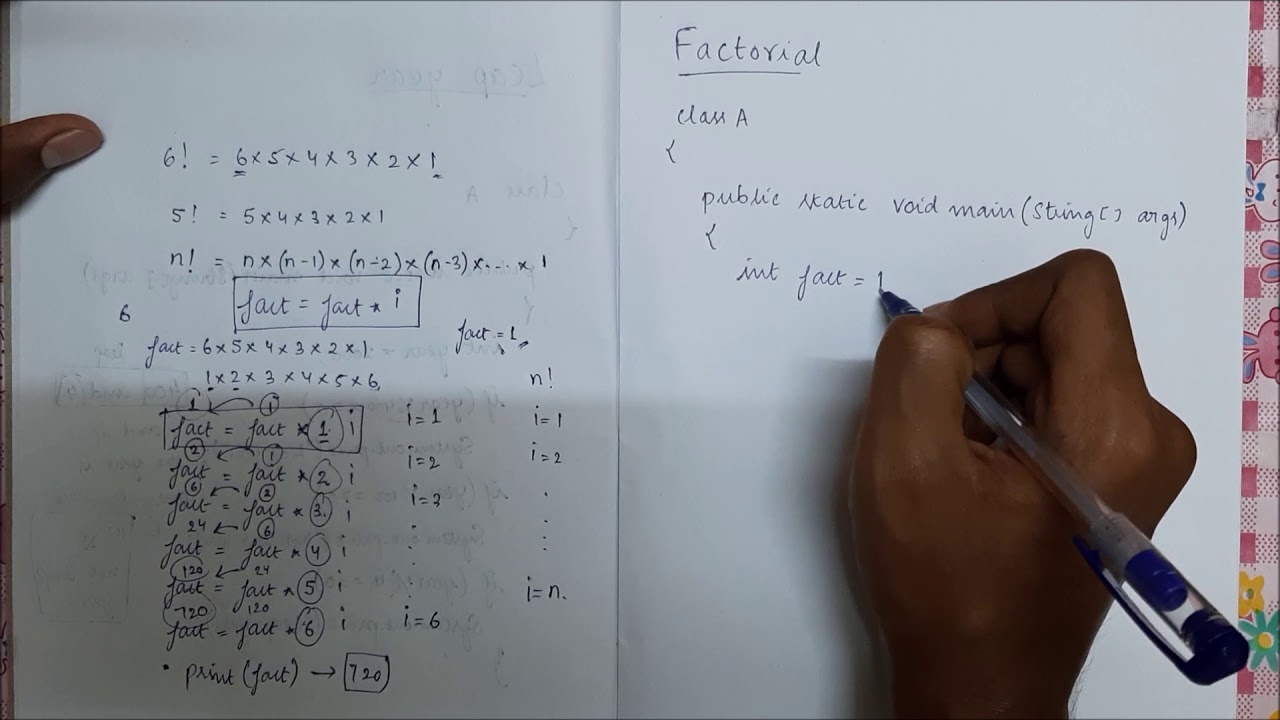 6! = 6 × 5 × 4 × 3 × 2 × 1
5! = 5 × 4 × 3 × 2 × 1
n! = n × (n-1) × (n-2) × (n-3) × .... × 1
fact = fact * i
6
fact = 6 × 5 × 4 × 3 × 2 × 1
fact = 1
1 × 2 × 3 × 4 × 5 × 6
n!
1 1
fact = fact * 1 i
i = 1
i = 1
2 1
fact = fact * 2 i
i = 2
i = 2
6 2
fact = fact * 3 i
i = 3
24 6
fact = fact * 4 i
120 24
fact = fact * 5 i
i = n.
720 120
fact = fact * 6 i
i = 6
• print(fact) → 720
Factorial
class A
{
public static void main(String[] args)
{
int fact = 1